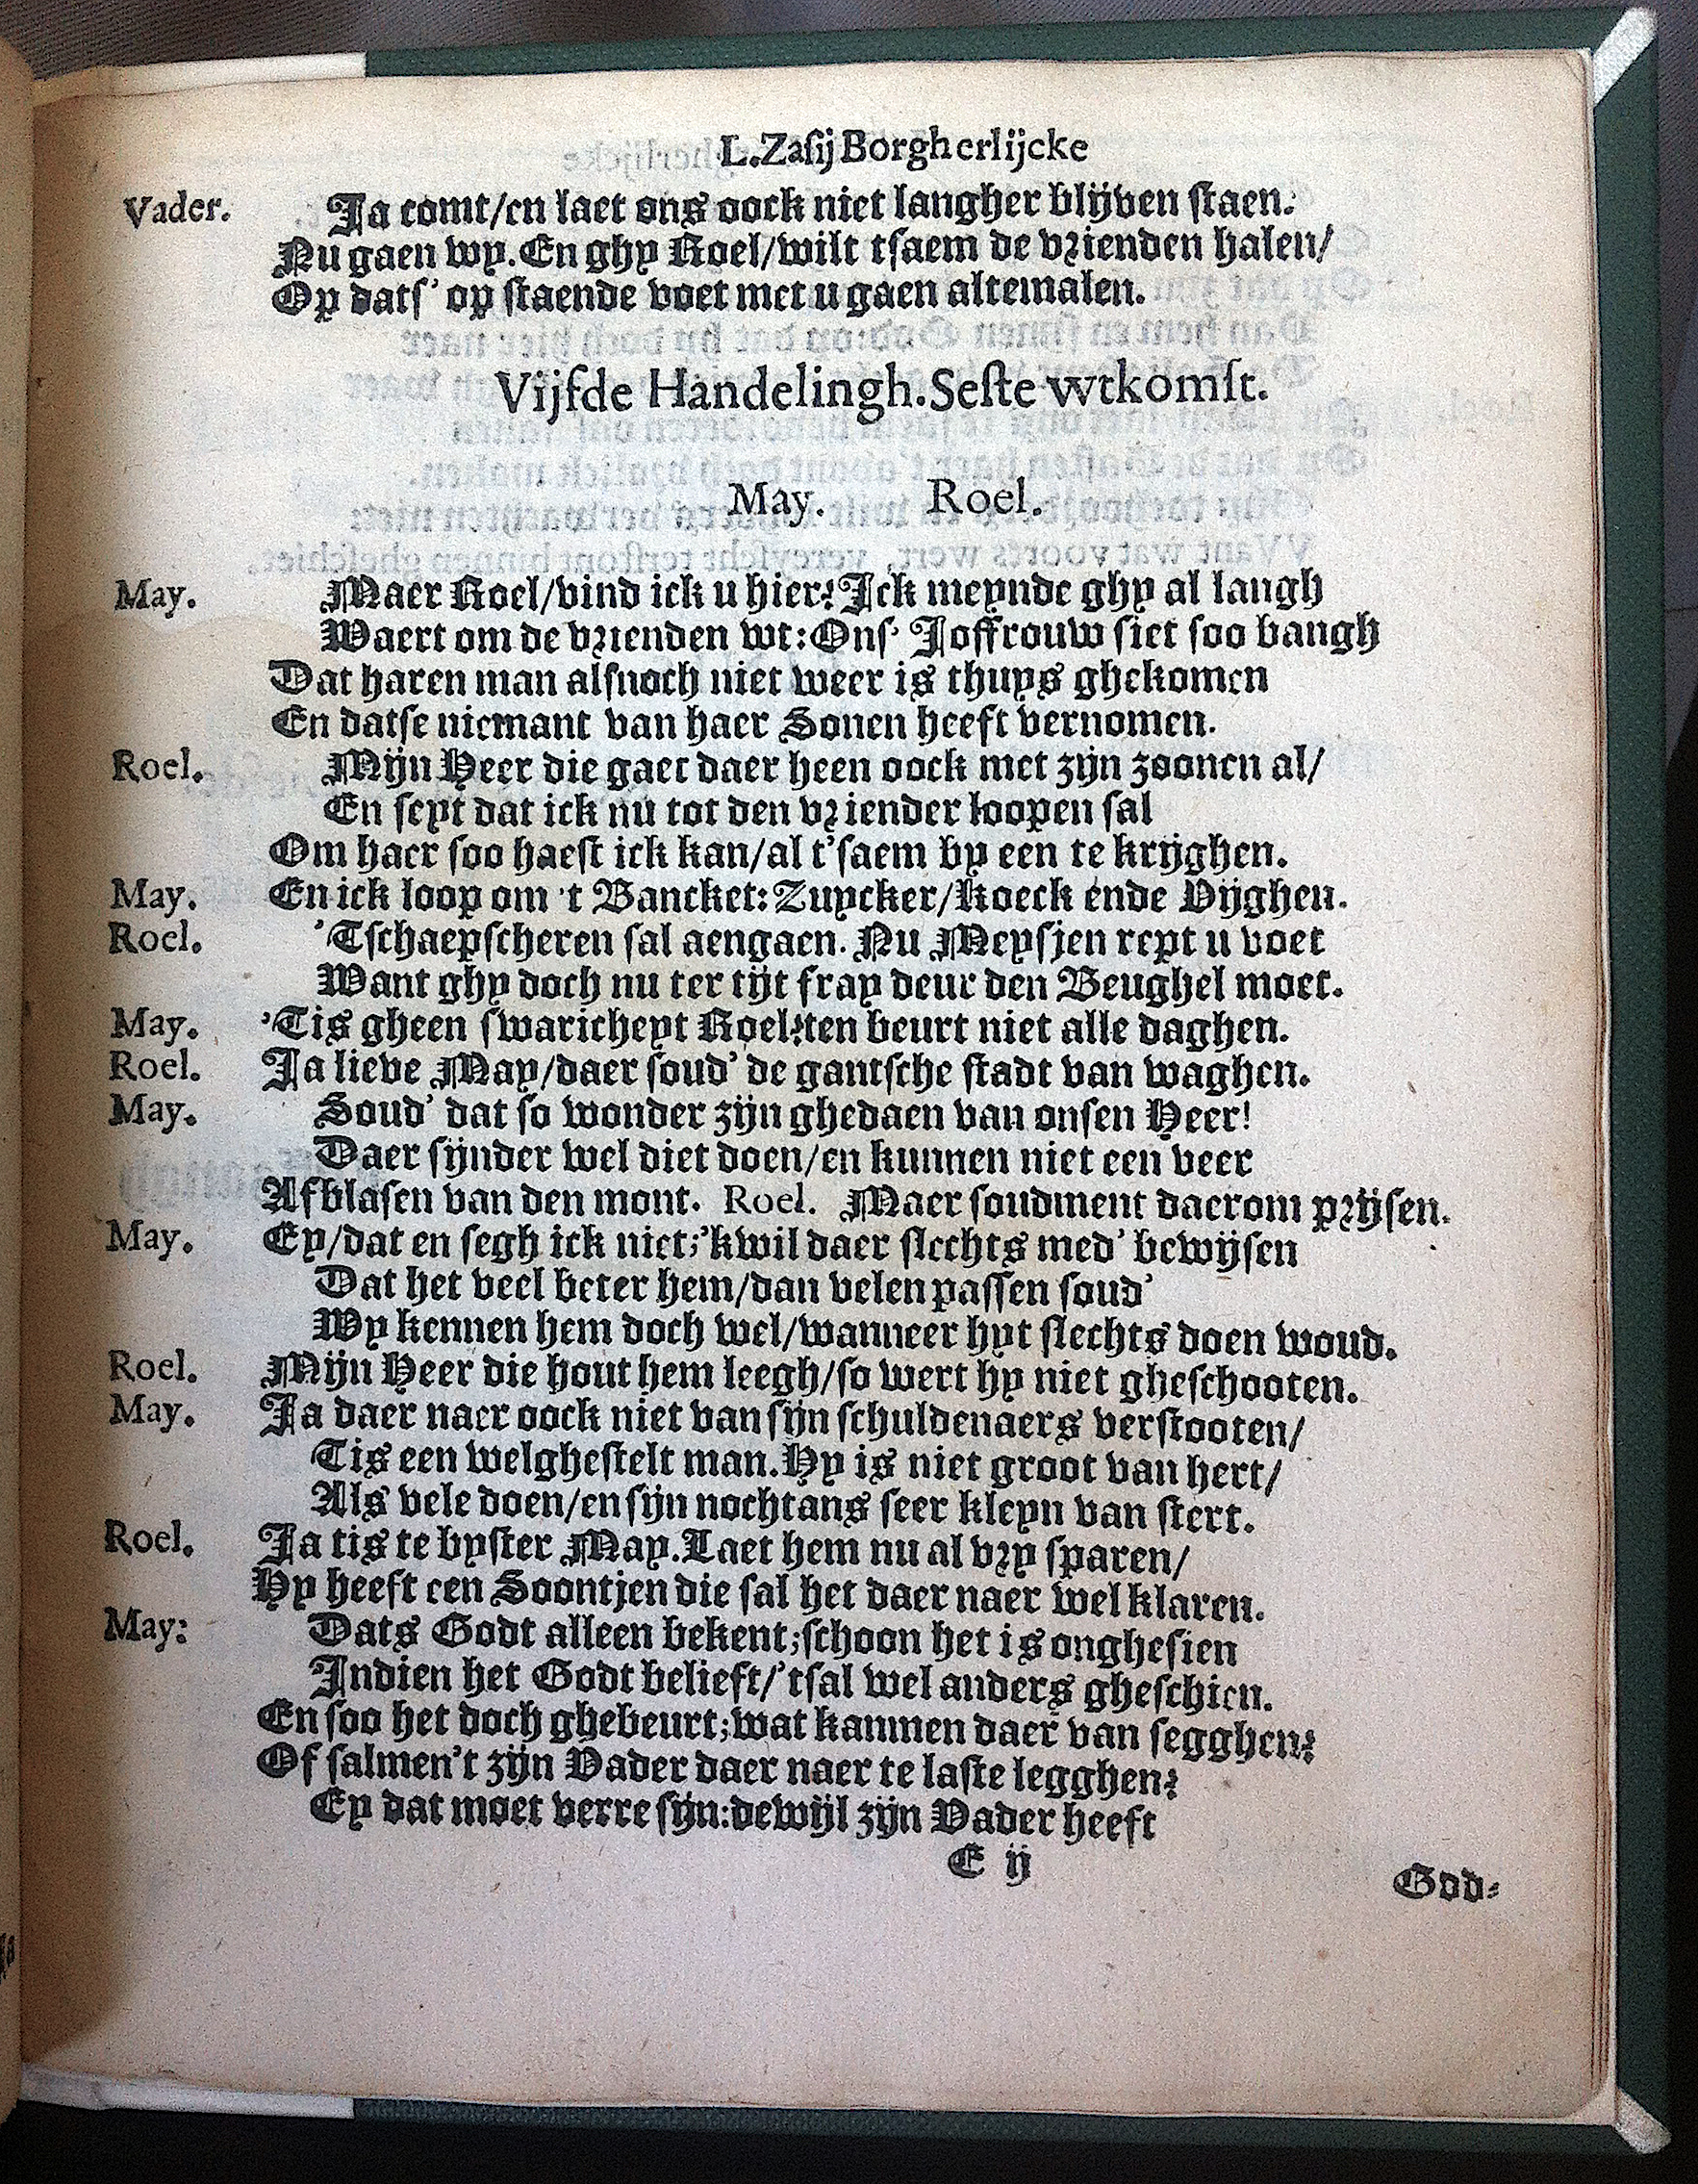 L. Zasij Borgherlijcke
Vader. Ja comt/en laet ons oock niet langher blijven staen.
Nu gaen wy. En ghy Roel/wilt tsaem de vrienden halen/
Op dats' op staende voet met u gaen altemalen.
Vijfde Handelingh. Seste wtkomst.
May. Roel.
May. Maer Roel/vind ick u hier? Ick meynde ghy al langh
Waert om de vrienden wt: Ons' Joffrouw siet soo bangh
Dat haren man alsnoch niet weer is thuys ghekomen
En datse niemant van haer Sonen heeft vernomen.
Roel. Mijn Heer die gaet daer heen oock met zijn zoonen al/
En seyt dat ick nu tot den vriender loopen sal
Om haer soo haest ick kan/al t'saem by een te krijghen.
May. En ick loop om 't Bancket: Zuycker/Koeck ende Vijghen.
Roel. 'Tschaepscheren sal aengaen. Nu Meysjen rept u voet
Want ghy doch nu ter tijt fray deur den Beughel moet.
May. 'Tis gheen swaricheyt Roel? ten beurt niet alle daghen.
Roel. Ja lieve May/daer soud' de gantsche stadt van waghen.
May. Soud' dat so wonder zijn ghedaen van onsen Heer!
Daer sijnder wel diet doen/en kunnen niet een veer
Afblasen van den mont. Roel. Maer soudment daerom prijsen.
May. Ey/dat en segh ick niet;'kwil daer slechts med' bewijsen
Dat het veel beter hem/dan velen passen soud'
Wy kennen hem doch wel/wanneer hyt slechts doen woud.
Roel. Mijn Heer die hout hem leegh/so wert hy niet gheschooten.
May. Ja daer naer oock niet van sijn schuldenaers verstooten/
Tis een welghestelt man. Hy is niet groot van hert/
Als vele doen/en sijn nochtans seer kleyn van stert.
Roel. Ja tis te byster May. Laet hem nu al vry sparen/
Hy heeft een Soontjen die sal het daer naer wel klaren.
May: Dats Godt alleen bekent;schoon het is onghesien
Indien het Godt belieft/'tsal wel anders gheschien.
En soo het doch ghebeurt;wat kanmen daer van segghen?
Of salmen't zijn Vader daer naer te laste legghen?
Ey dat moet verre sijn:dewijl zijn Vader heeft
E ij
God-